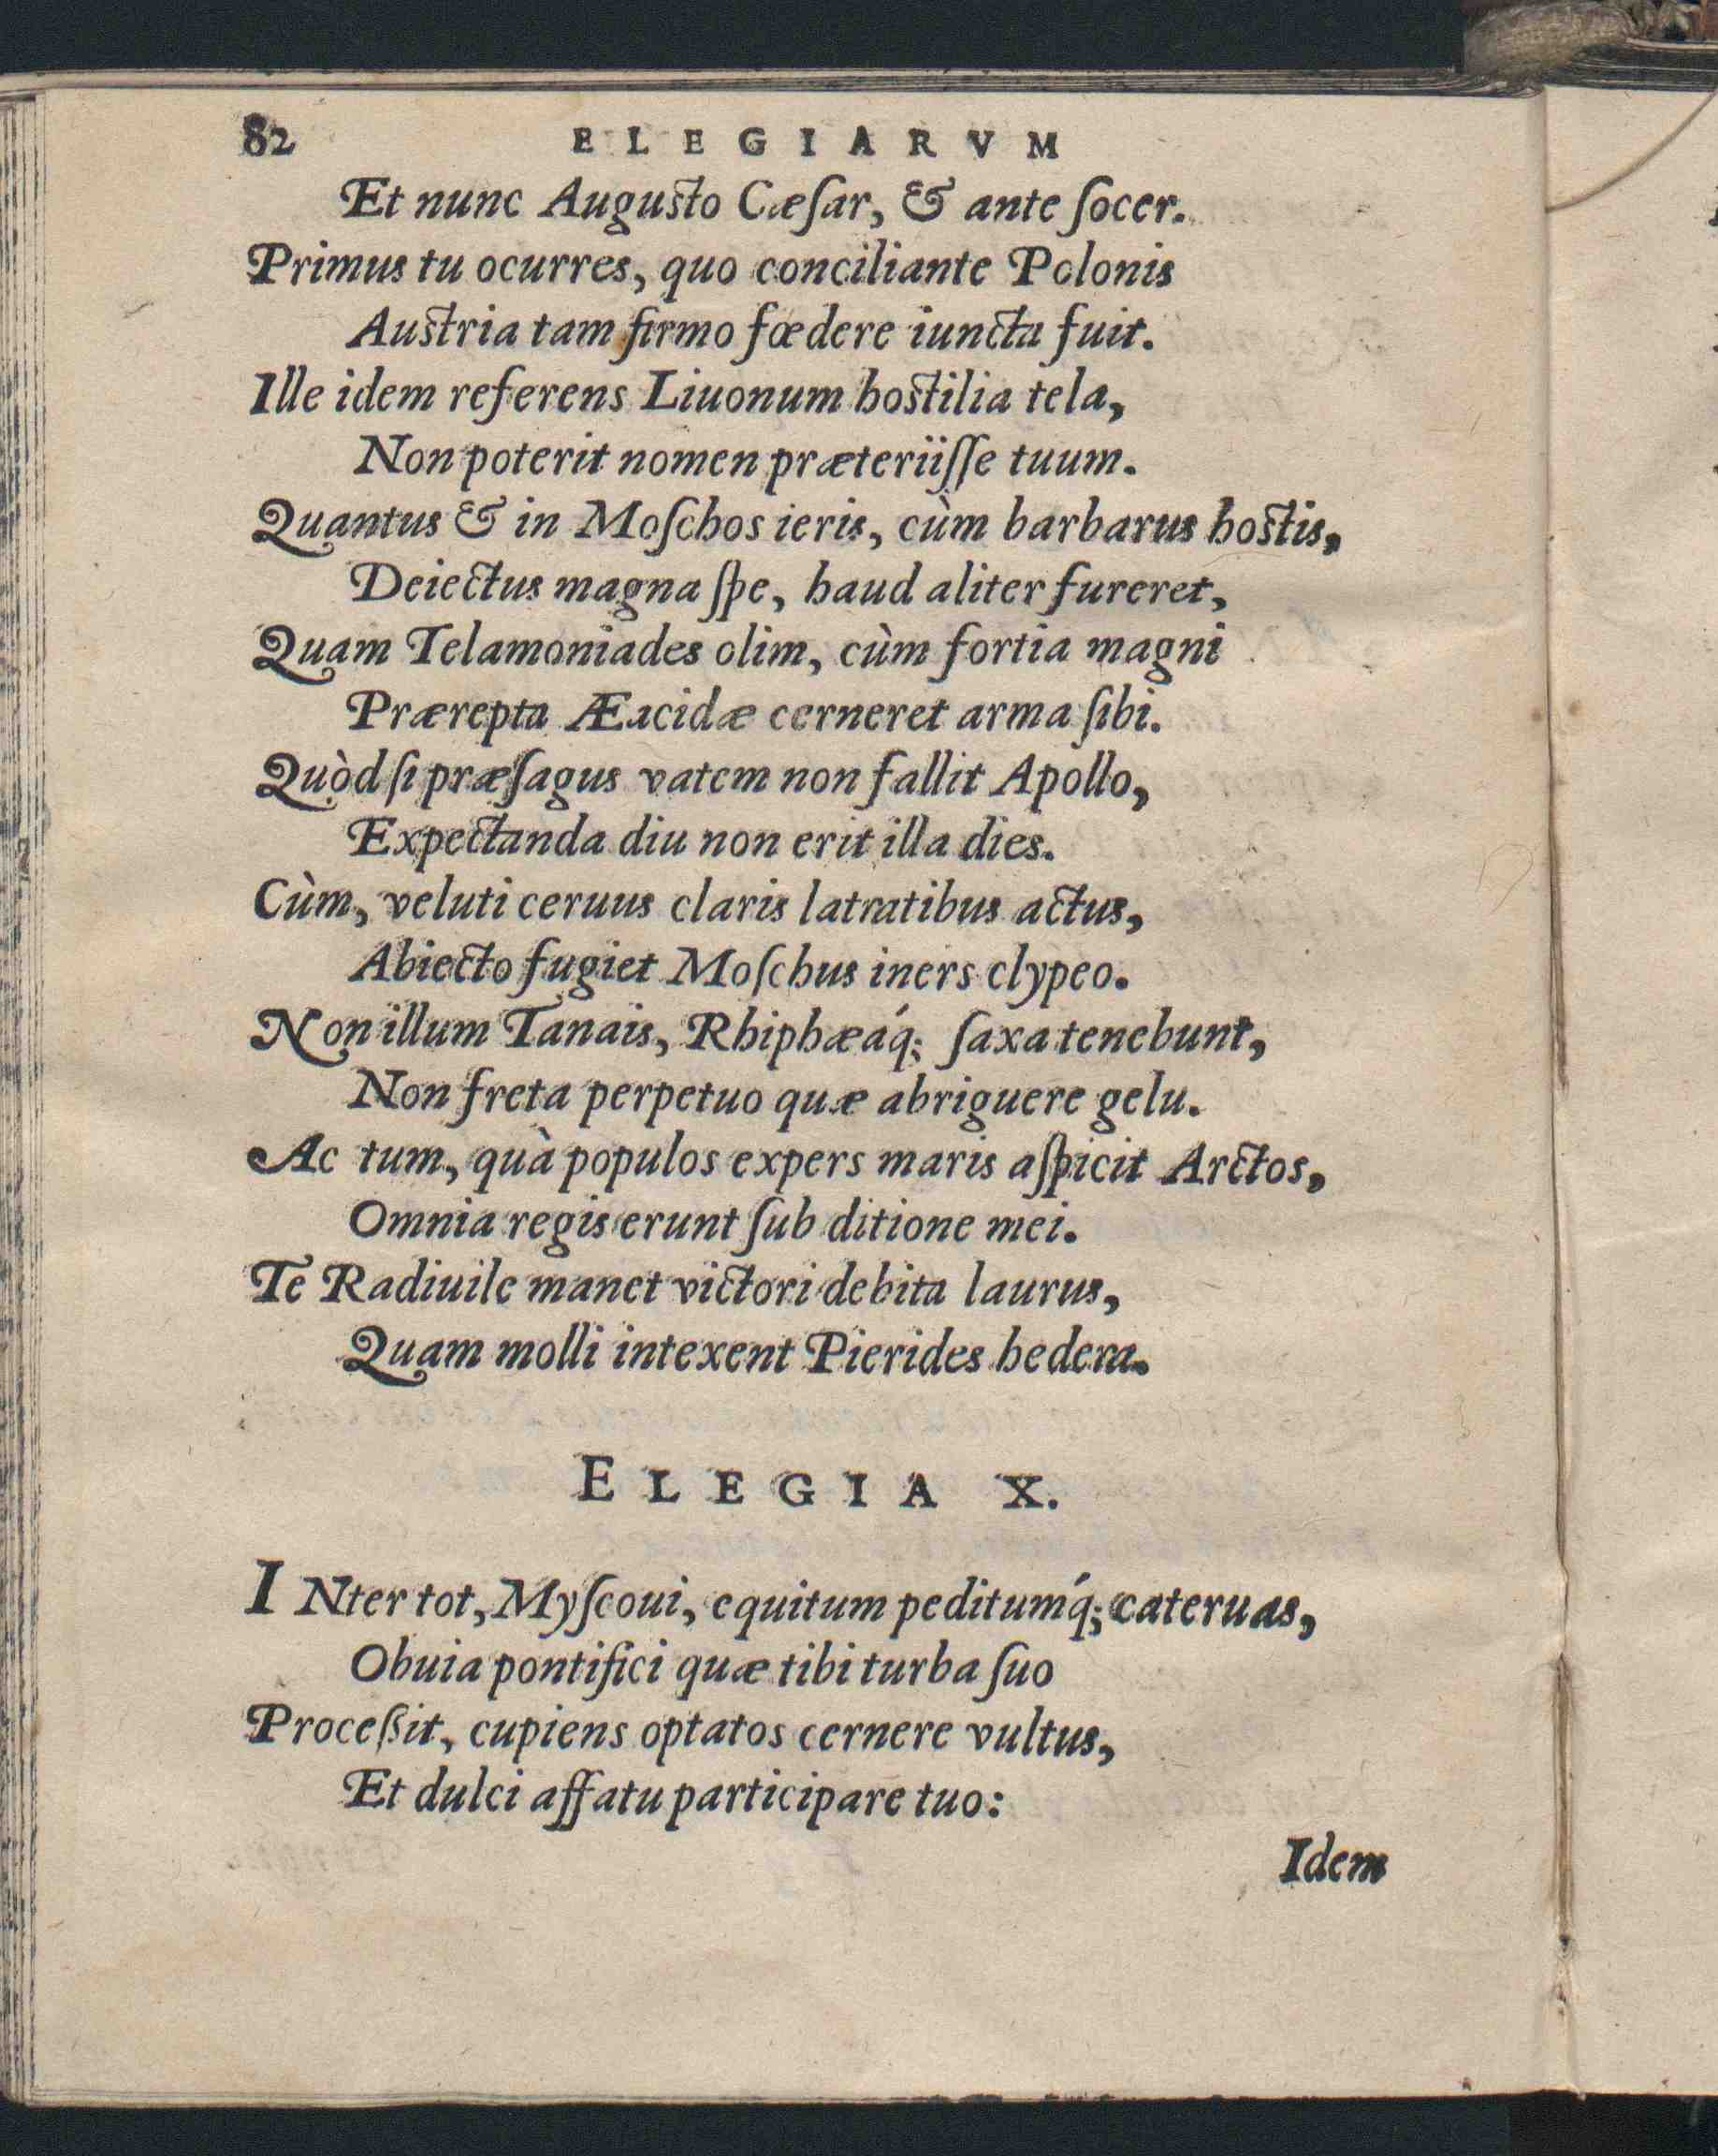 82 ELEGIARVM
Et nunc Augusto Cæſar, & ante ſocer.
Primus tu ocurres, quo conciliante Polonis
Austria tam firmo fœdere iuncta fuit.
Ille idem referens Liuonum hostilia tela,
Non poterit nomen præteriiſſe tuum.
Quantus & in Moſchos ieris, cùm barbarus hostis,
Deiectus magna ſpe, haud aliter fureret,
Quam Telamoniades olim, cùm fortia magni
Prærepta Æacidæ cerneret arma ſibi.
Quòd ſi præſagus vatem non fallit Apollo,
Expectanda diu non erit illa dies.
Cùm, veluti ceruus claris latratibus actus,
Abiecto fugiet Moſchus iners clypeo.
Non illum Tanais, Rhiphæáq; ſaxa tenebunt,
Non freta perpetuo quæ abriguere gelu.
Ac tum, quà populos expers maris aſpicit Arctos,
Omnia regis erunt ſub ditione mei.
Te Radiuile manet victori debita laurus,
Quam molli intexent Pierides hedera.
ELEGIA X.
INter tot, Myſcoui, equitum peditumq́; cateruas,
Obuia pontifici quæ tibi turba ſuo
Proceßit, cupiens optatos cernere vultus,
Et dulci affatu participare tuo:
Idem